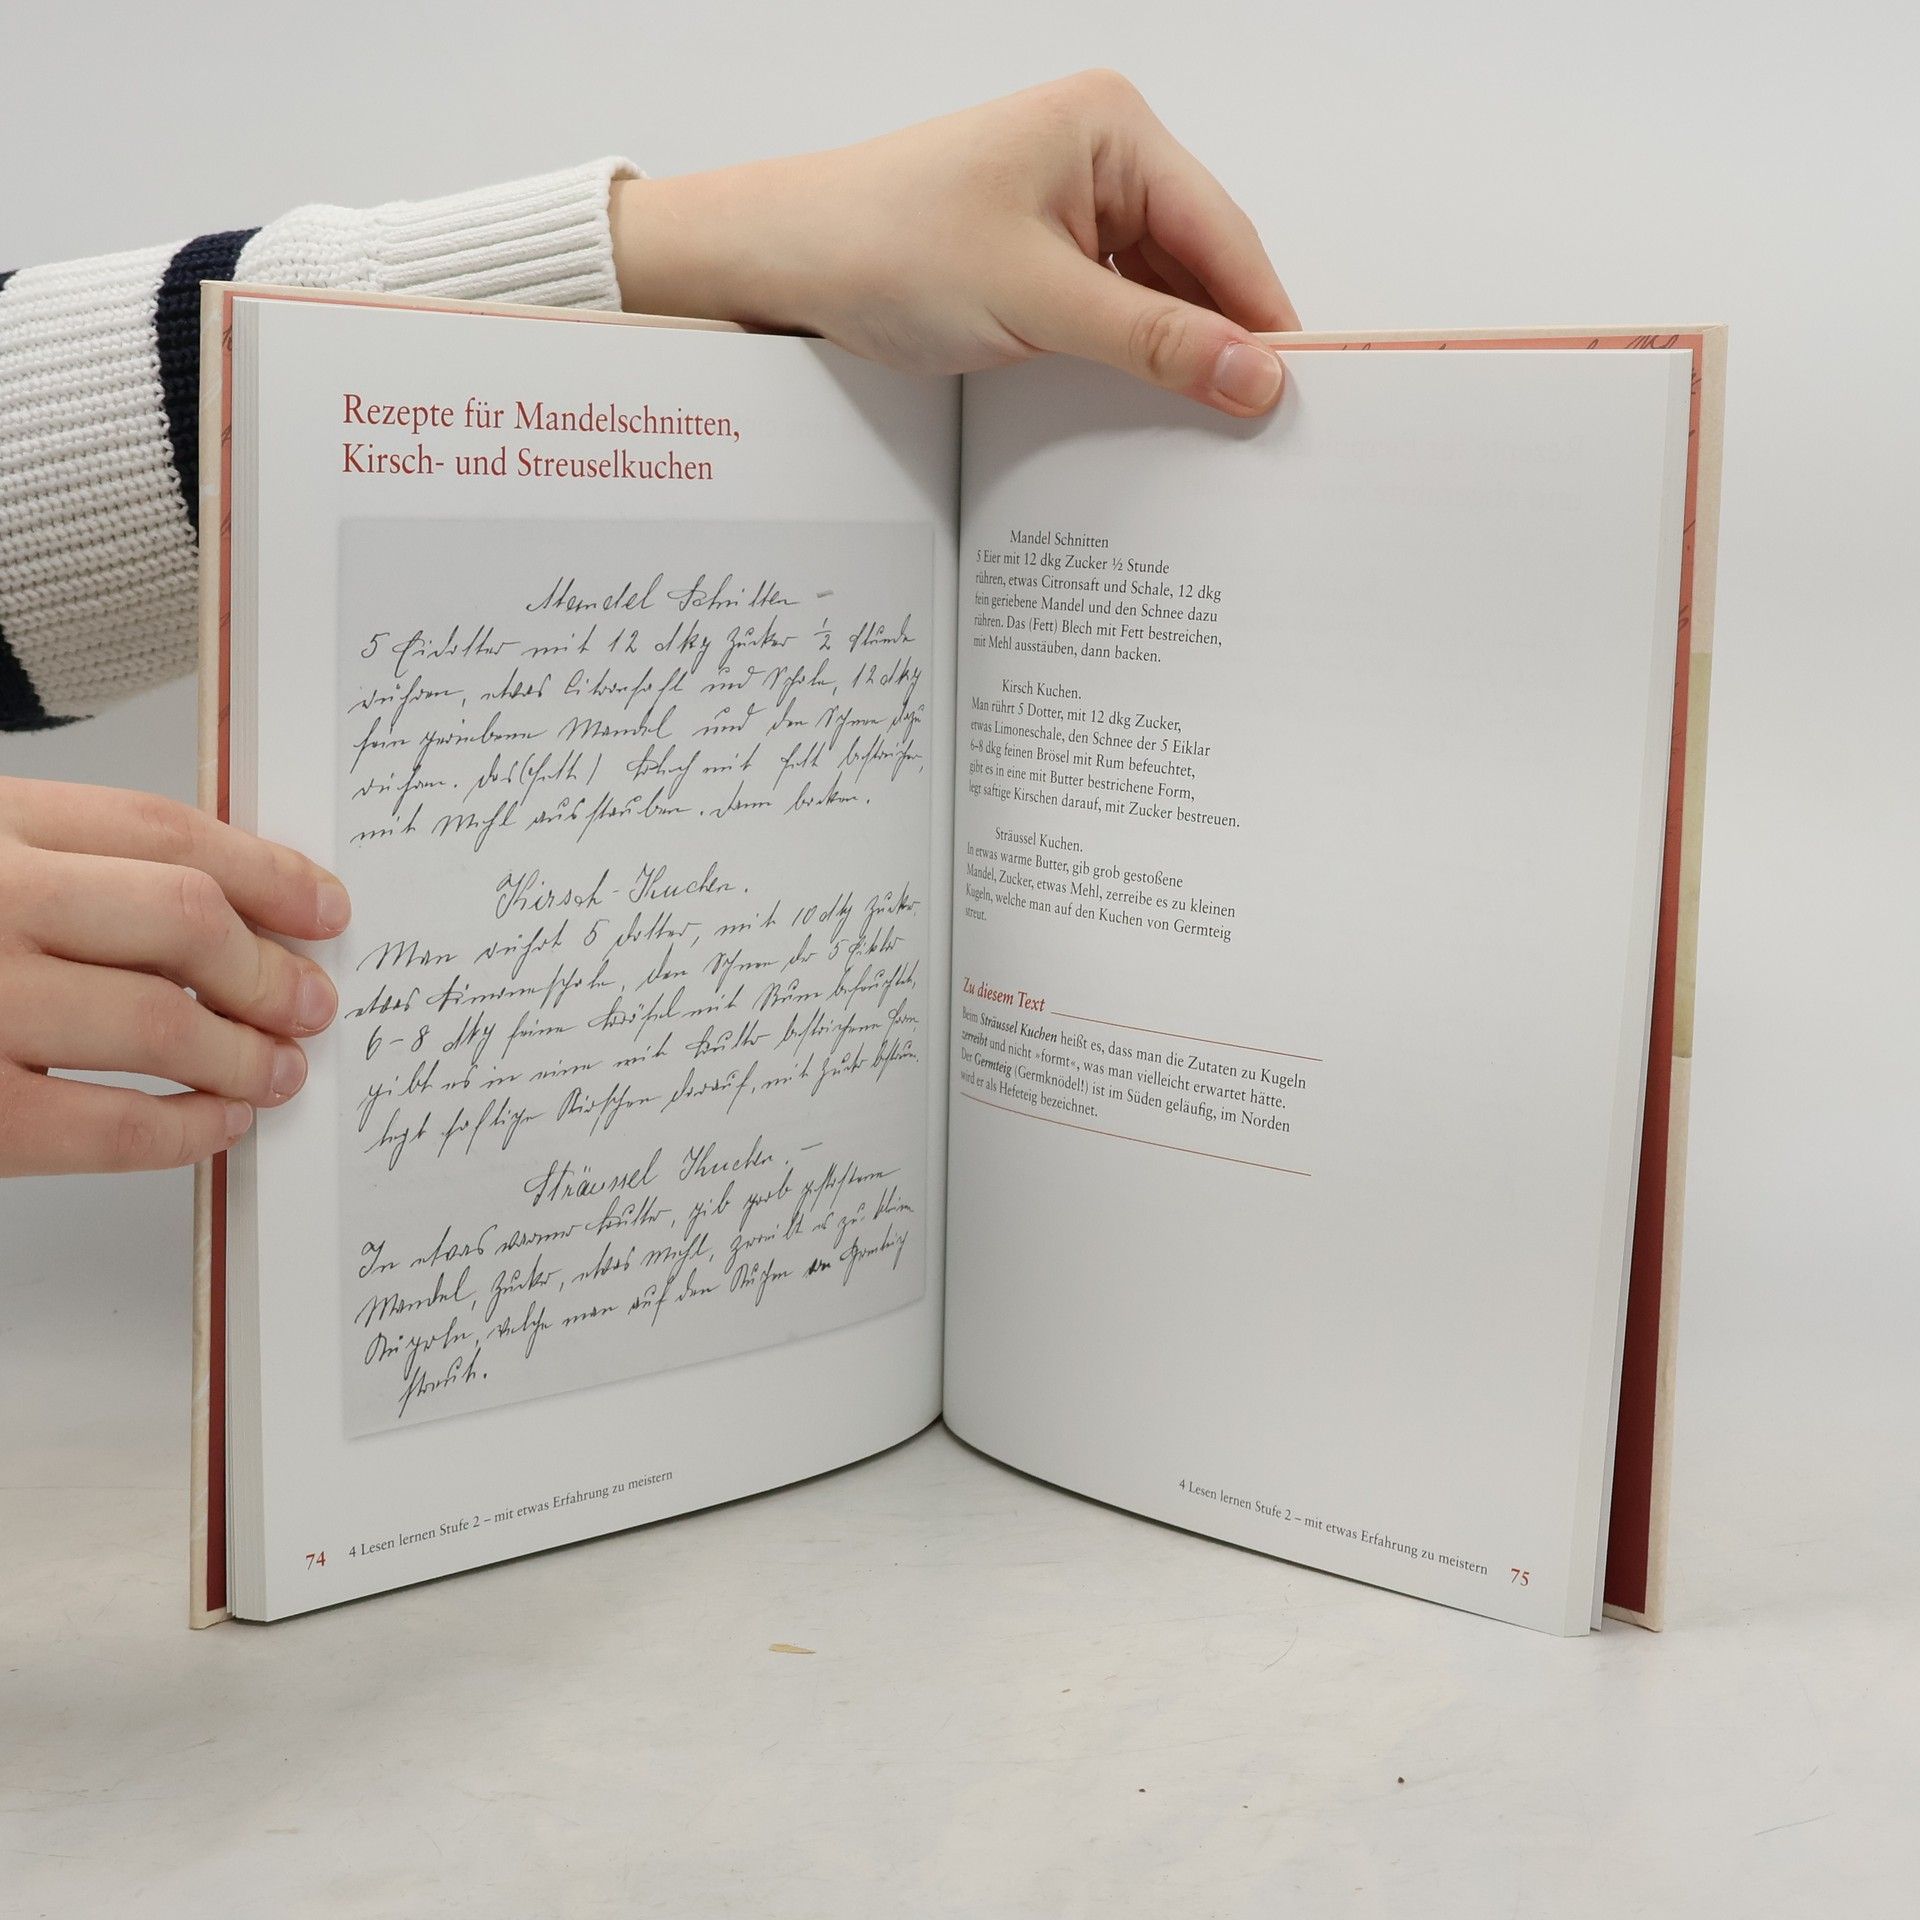 Rezepte für Mandelschnitten,
Kirsch- und Streuselkuchen
Mandel Schnitten –
5 Eidotter mit 12 dkg Zucker ½ Stunde
rühren, etwas Citronsaft und Schale, 12 dkg
fein geriebene Mandel und den Schnee dazu
rühren. Das (Fett) Blech mit Fett bestreichen,
mit Mehl ausstauben. dann backen.
Kirsch-Kuchen.
Man rührt 5 Dotter, mit 10 dkg Zucker,
etwas Limoneschale, den Schnee der 5 Eiklar
6–8 dkg feine Brösel mit Rum befeuchtet,
gibt es in eine mit Butter bestrichene Form,
legt saftige Kirschen darauf, mit Zucker bestreuen.
Sträussel Kuchen. –
In etwas warme Butter, gib grob gestossene
Mandel, Zucker, etwas Mehl, zerreibt es zu kleinen
Kugeln, welche man auf den Kuchen von Germteig
streut.
74 4 Lesen lernen Stufe 2 – mit etwas Erfahrung zu meistern
Mandel Schnitten
5 Eier mit 12 dkg Zucker ½ Stunde
rühren, etwas Citronsaft und Schale, 12 dkg
fein geriebene Mandel und den Schnee dazu
rühren. Das (Fett) Blech mit Fett bestreichen,
mit Mehl ausstäuben, dann backen.
Kirsch Kuchen.
Man rührt 5 Dotter, mit 12 dkg Zucker,
etwas Limoneschale, den Schnee der 5 Eiklar
6–8 dkg feinen Brösel mit Rum befeuchtet,
gibt es in eine mit Butter bestrichene Form,
legt saftige Kirschen darauf, mit Zucker bestreuen.
Sträussel Kuchen.
In etwas warme Butter, gib grob gestoßene
Mandel, Zucker, etwas Mehl, zerreibe es zu kleinen
Kugeln, welche man auf den Kuchen von Germteig
streut.
Zu diesem Text
Beim Sträussel Kuchen heißt es, dass man die Zutaten zu Kugeln
zerreibt und nicht »formt«, was man vielleicht erwartet hätte.
Der Germteig (Germknödel!) ist im Süden geläufig, im Norden
wird er als Hefeteig bezeichnet.
4 Lesen lernen Stufe 2 – mit etwas Erfahrung zu meistern 75